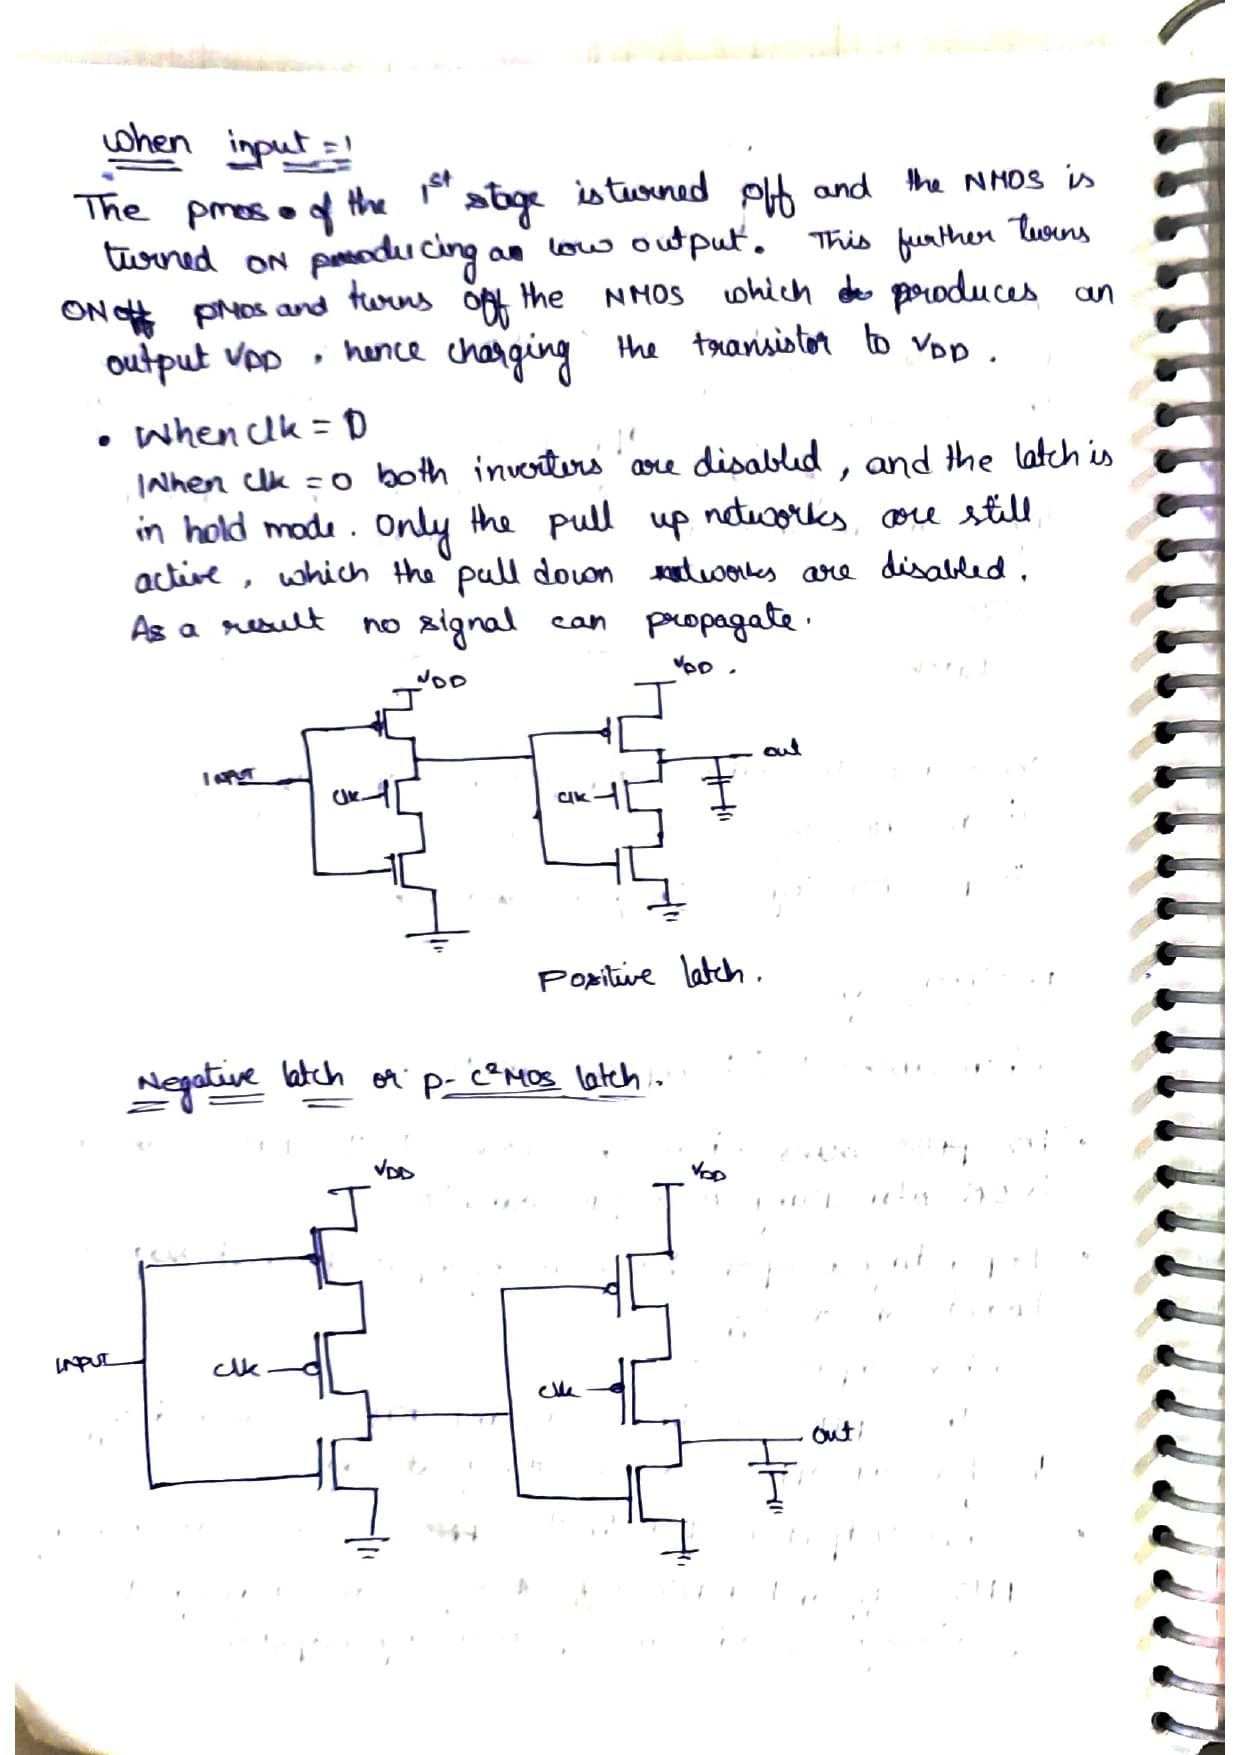 When input = 1
The pmos of the 1st stage is turned off and the NMOS is
turned ON producing an low output. This further turns
ON PMOS and turns off the NMOS which produces an
output VDD, hence charging the transistor to VDD.
• When clk = 0
When clk = 0 both inverters are disabled, and the latch is
in hold mode. Only the pull up networks are still
active, which the pull down networks are disabled.
As a result no signal can propagate.
VDD
VDD.
INPUT
clk
clk
out
Positive latch.
Negative latch or p- C²MOS latch.
VDD
VDD
INPUT
clk
clk
out